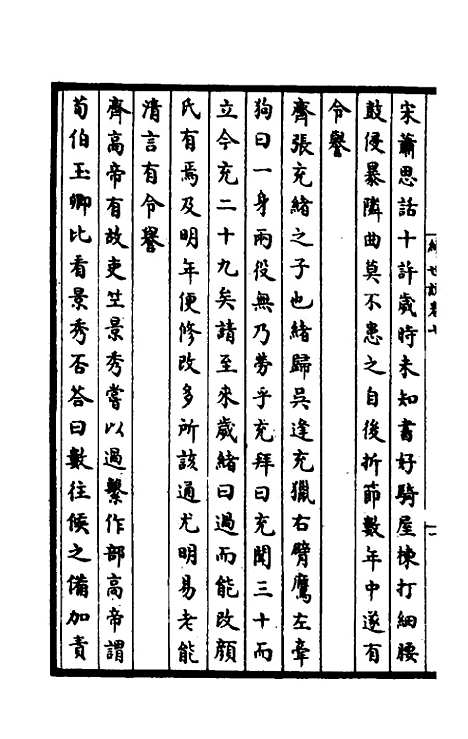 宋蕭思話十許歲時未知書好騎屋棟打細腰
鼓侵暴隣曲莫不患之自後折節數年中遂有
令譽
齊張充緒之子也緒歸吳逢充獵右臂鷹左牽
狗曰一身兩役無乃勞乎充拜曰充聞三十而
立今充二十九矣請至來歲緒曰過而能改顏
氏有焉及明年便修改多所該通尤明易老能
清言有令譽
齊高帝有故吏竺景秀嘗以過繫作部高帝謂
荀伯玉卿比看景秀否答曰數往候之備加責